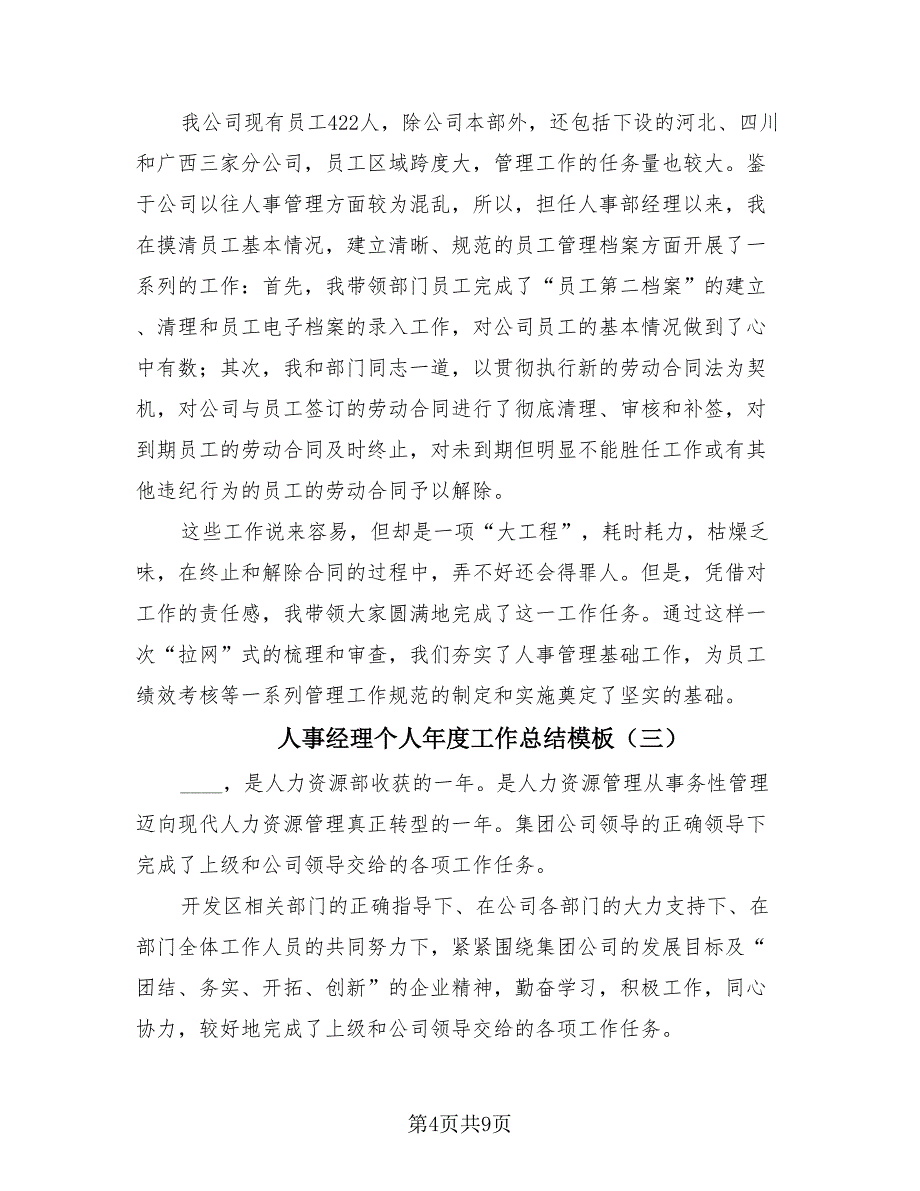 我公司现有员工422人，除公司本部外，还包括下设的河北、四川
和广西三家分公司，员工区域跨度大，管理工作的任务量也较大。鉴
于公司以往人事管理方面较为混乱，所以，担任人事部经理以来，我
在摸清员工基本情况，建立清晰、规范的员工管理档案方面开展了一
系列的工作：首先，我带领部门员工完成了“员工第二档案”的建立
、清理和员工电子档案的录入工作，对公司员工的基本情况做到了心
中有数；其次，我和部门同志一道，以贯彻执行新的劳动合同法为契
机，对公司与员工签订的劳动合同进行了彻底清理、审核和补签，对
到期员工的劳动合同及时终止，对未到期但明显不能胜任工作或有其
他违纪行为的员工的劳动合同予以解除。
这些工作说来容易，但却是一项“大工程”，耗时耗力，枯燥乏
味，在终止和解除合同的过程中，弄不好还会得罪人。但是，凭借对
工作的责任感，我带领大家圆满地完成了这一工作任务。通过这样一
次“拉网”式的梳理和审查，我们夯实了人事管理基础工作，为员工
绩效考核等一系列管理工作规范的制定和实施奠定了坚实的基础。
人事经理个人年度工作总结模板（三）
____，是人力资源部收获的一年。是人力资源管理从事务性管理
迈向现代人力资源管理真正转型的一年。集团公司领导的正确领导下
完成了上级和公司领导交给的各项工作任务。
开发区相关部门的正确指导下、在公司各部门的大力支持下、在
部门全体工作人员的共同努力下，紧紧围绕集团公司的发展目标及“
团结、务实、开拓、创新”的企业精神，勤奋学习，积极工作，同心
协力，较好地完成了上级和公司领导交给的各项工作任务。
第4页共9页